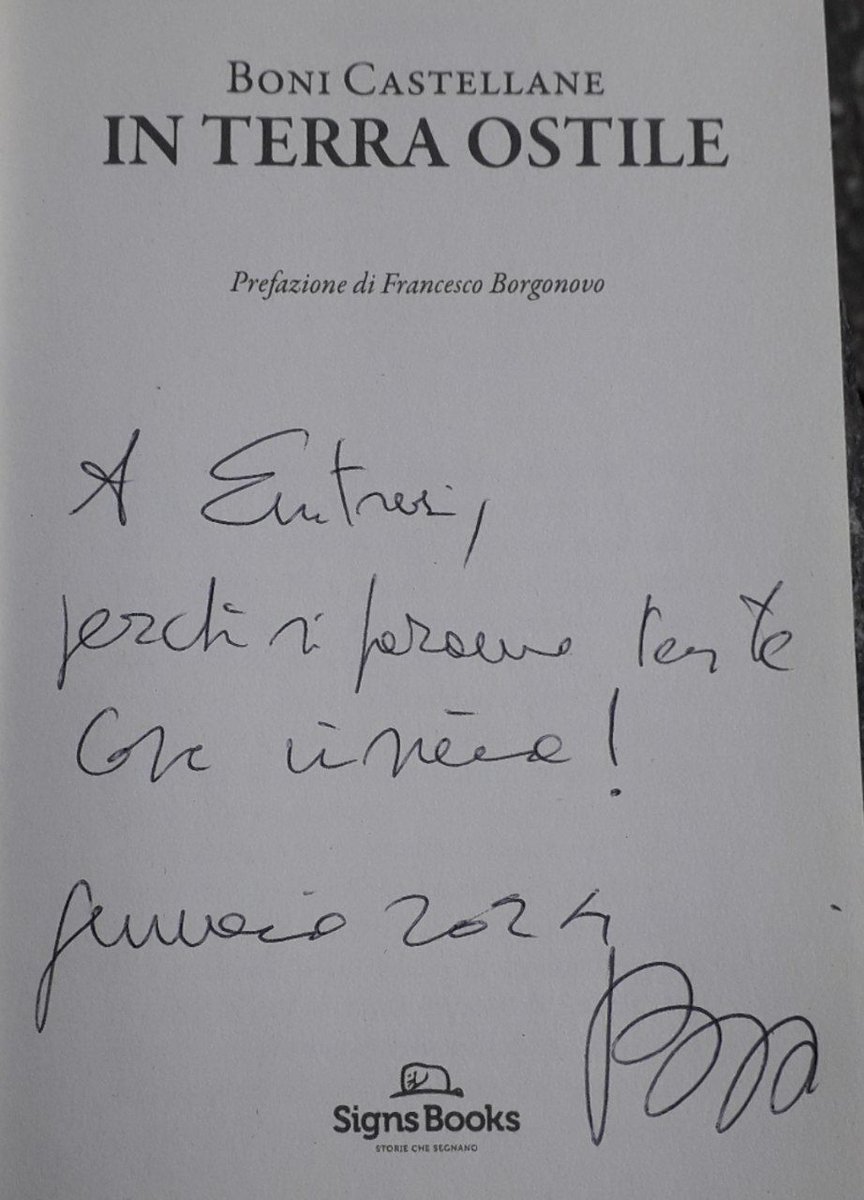 BONI CASTELLANE
IN TERRA OSTILE
Prefazione di Francesco Borgonovo
A
perché si possono
cose insieme!
gennaio 2024
Signs Books
STORIE CHE SEGNANO